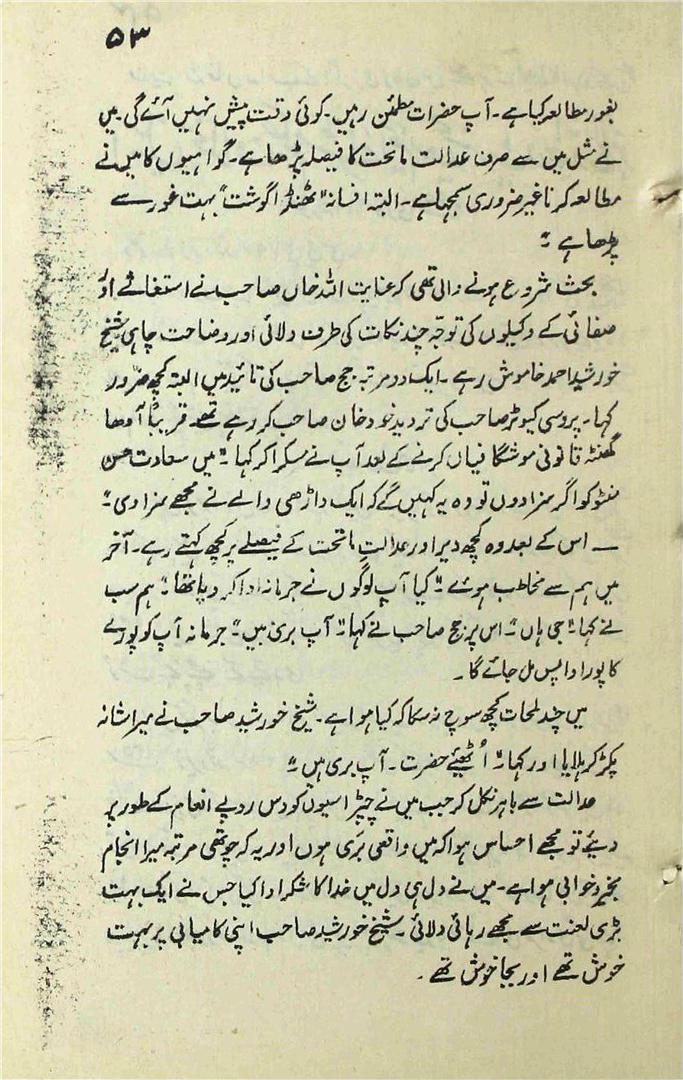 ۵۳
بغور مطالعہ کیا ہے۔ آپ حضرات مطمئن رہیں۔ کوئی دقت پیش نہیں آئے گی۔ میں
نے مثل میں سے صرف عدالت ماتحت کا فیصلہ پڑھا ہے۔ گواہیوں کا میں نے
مطالعہ کرنا غیر ضروری سمجھا ہے۔ البتہ افسانہ "ٹھنڈا گوشت" بہت غور سے
پڑھا ہے "
بحث شروع ہونے والی تھی کہ عنایت اللہ خاں صاحب نے استغاثے اور
صفائی کے وکیلوں کی توجہ چند نکات کی طرف دلائی اور وضاحت چاہی شیخ
خورشید احمد خاموش رہے۔ ایک دو مرتبہ جج صاحب کی تائید میں البتہ کچھ ضرور
کہا۔ پروسی کیوٹر صاحب کی تردید خود خان صاحب کر رہے تھے قریباً آدھا
گھنٹہ قانونی موشگافیاں کرنے کے بعد آپ نے مسکرا کر کہا " میں سعادت حسن
منٹو کو اگر سزا دوں تو وہ یہ کہیں گے کہ ایک داڑھی والے نے مجھے سزا دی "
— اس کے بعد وہ کچھ دیر اور عدالت ماتحت کے فیصلے پر کچھ کہتے رہے۔ آخر
میں ہم سے مخاطب ہوئے " کیا آپ لوگوں نے جرمانہ ادا کر دیا تھا " ہم سب
نے کہا " جی ہاں " اس پر جج صاحب نے کہا " آپ بری ہیں " جرمانہ آپ کو پورے
کا پورا واپس مل جائے گا۔
میں چند لمحات کچھ سوچ نہ سکا کہ کیا ہوا ہے۔ شیخ خورشید صاحب نے میرا شانہ
پکڑ کر ہلایا اور کہا " اُٹھیئے حضرت۔ آپ بری ہیں "
عدالت سے باہر نکل کر جب میں نے چپڑاسیوں کو دس روپے انعام کے طور پر
دیئے تو مجھے احساس ہوا کہ میں واقعی بَری ہوں اور یہ کہ چوتھی مرتبہ میرا انجام
بخیر و خوابی ہوا ہے۔ میں نے دل ہی دل میں خدا کا شکر ادا کیا جس نے ایک بہت
بڑی لعنت سے مجھے رہائی دلائی۔ شیخ خورشید صاحب اپنی کامیابی پر بہت
خوش تھے اور بجا خوش تھے۔